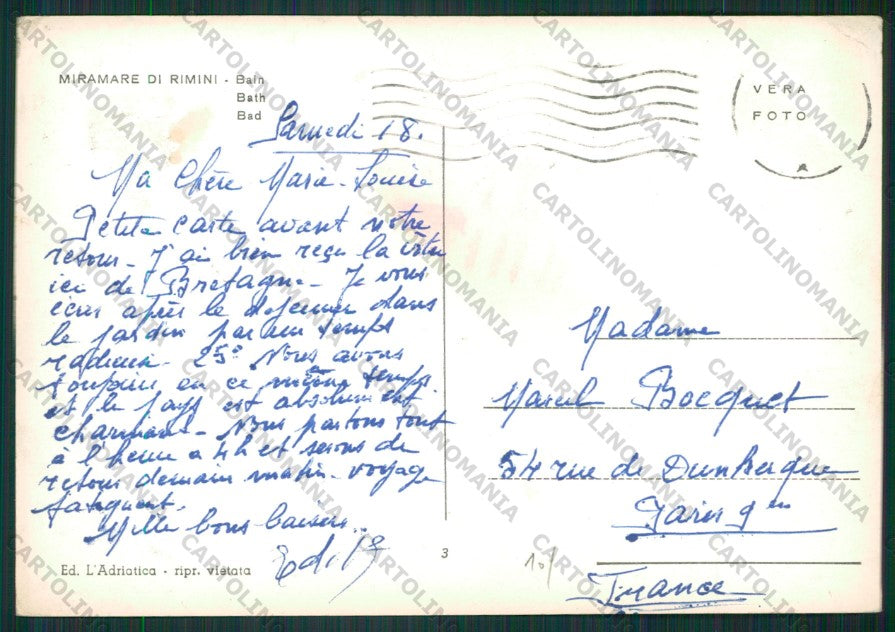 MIRAMARE DI RIMINI - Bain
Bath
Bad
VERA
FOTO
Samedi 18.
Ma Chère Marie-Louise
Petite carte avant notre
retour - J'ai bien reçu la vôtre
ici de Bretagne - Je vous
écris après le déjeuner dans
le jardin par un temps
radieux - 25° Nous avons
toujours eu ce même temps
et le pays est absolument
charmant - Nous partons tout
à l'heure à 4h et serons de
retour demain matin - voyage
fatiguant.
Mille bons baisers...
Edith
Madame
Marcel Bocquet
54 rue de Dunkerque
Paris 9em
France
Ed. L'Adriatica - ripr. vietata
3
10/
CARTOLINOMANIA